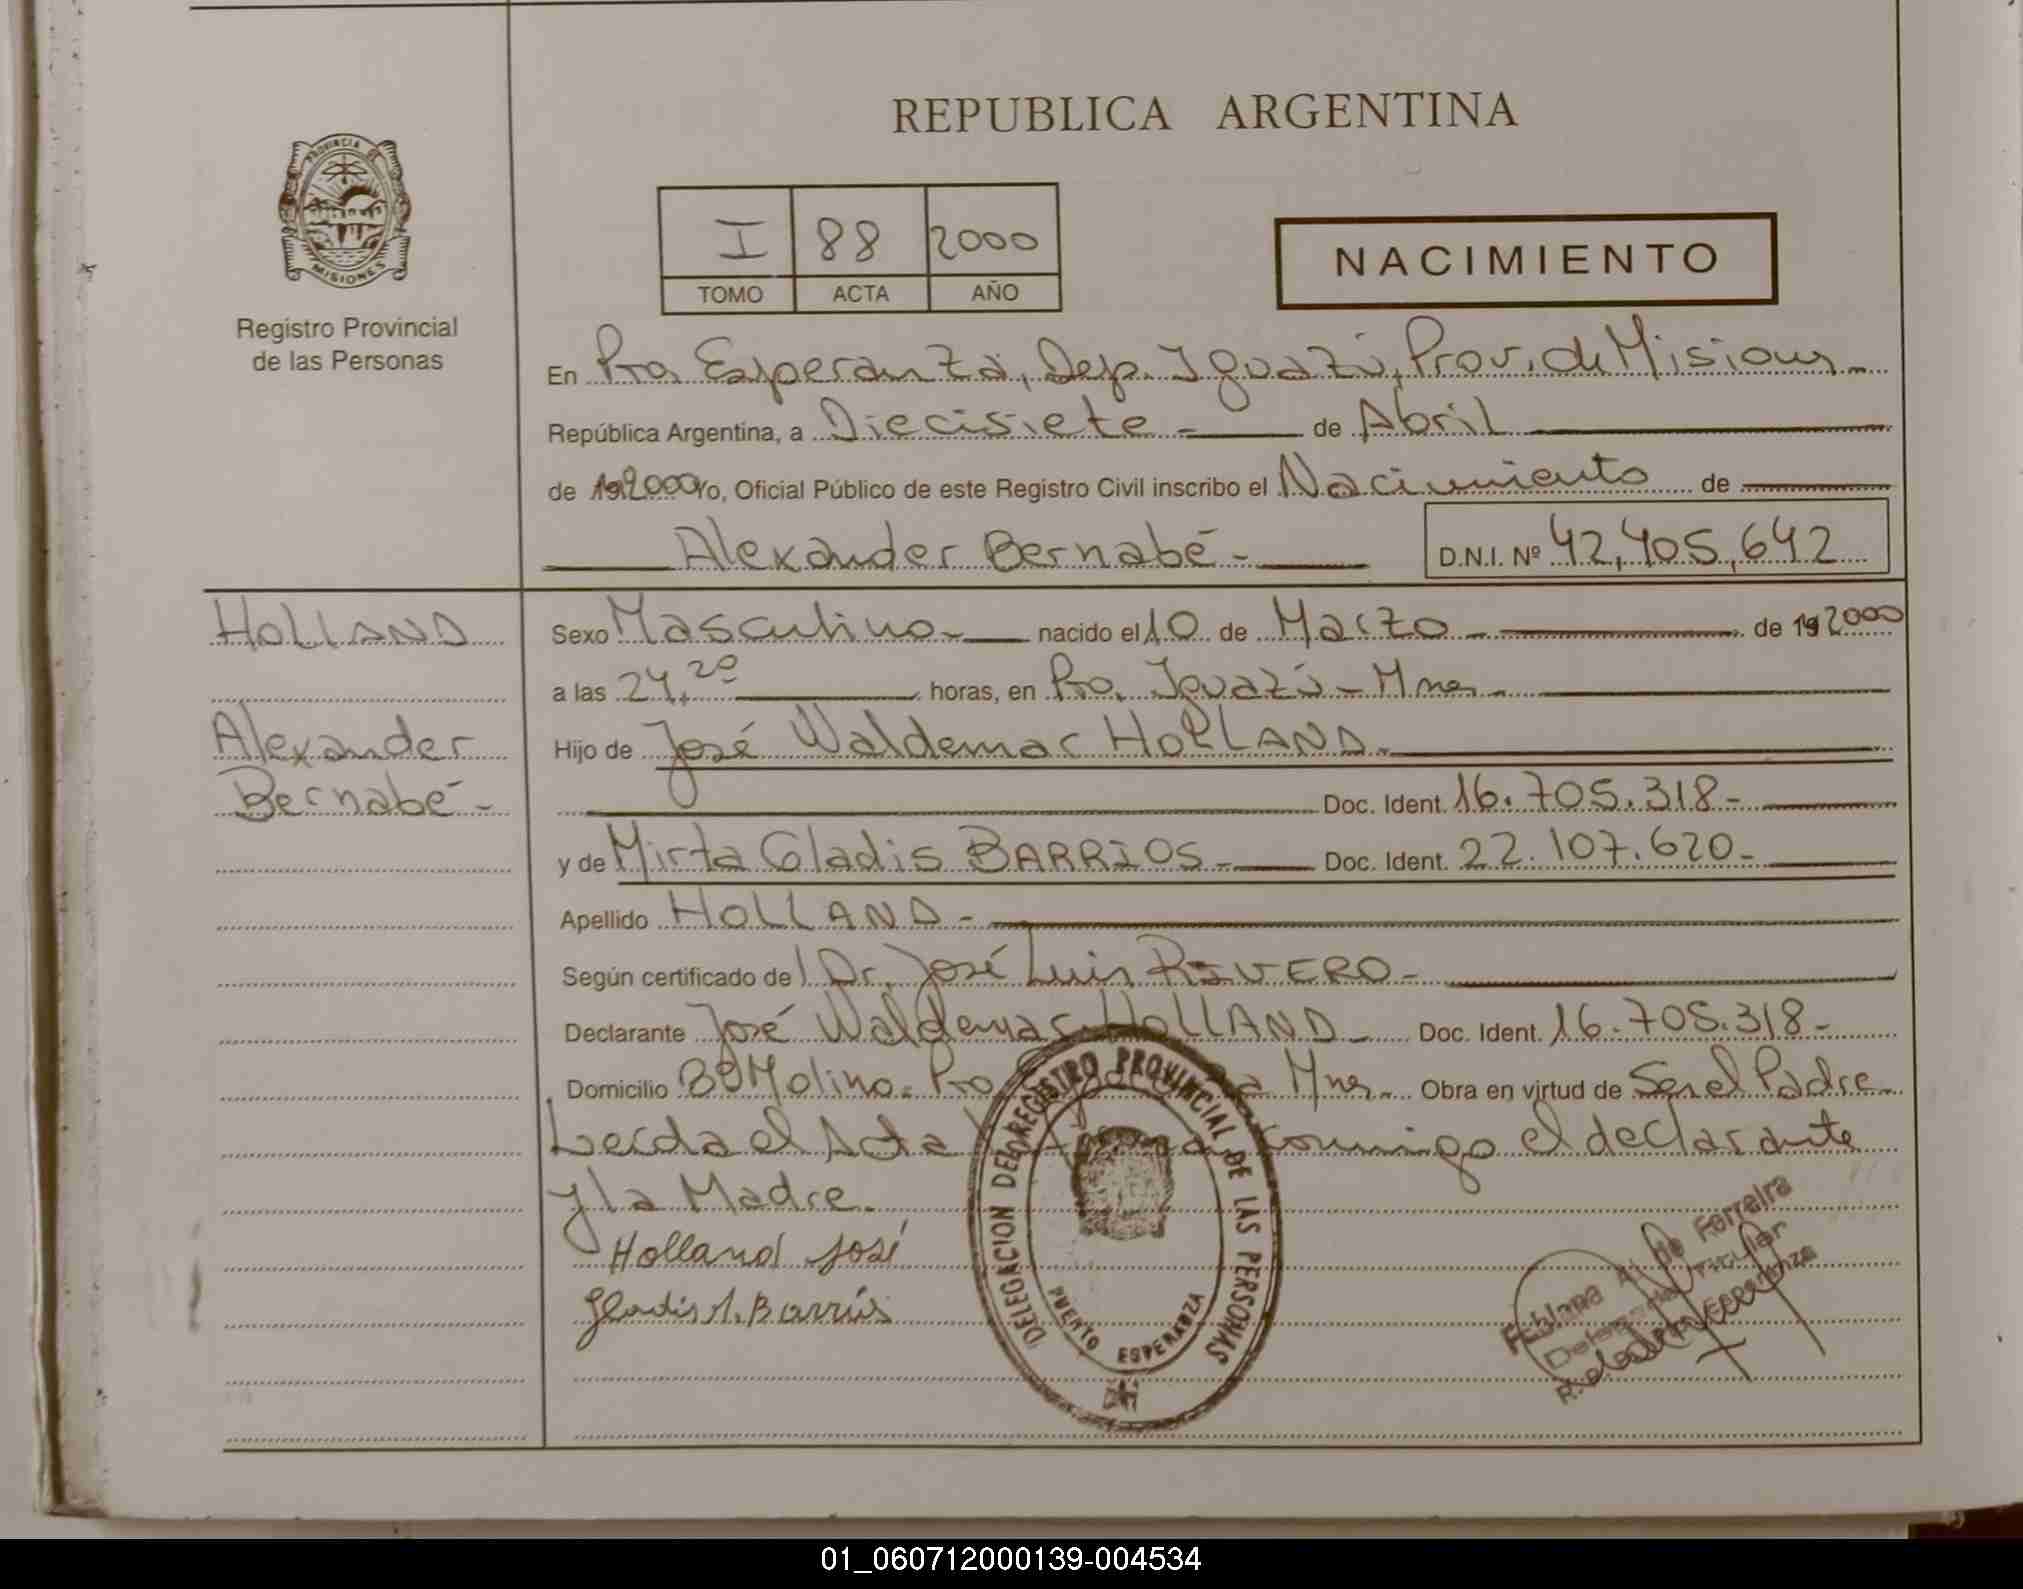 REPUBLICA ARGENTINA
PROVINCIA DE
MISIONES
Registro Provincial
de las Personas
I 88 2000
TOMO ACTA AÑO
NACIMIENTO
En Pto. Esperanza, Dep. Iguazú, Prov. de Misiones
República Argentina, a Diecisiete - de Abril
de 192000 Yo, Oficial Público de este Registro Civil inscribo el Nacimiento de
Alexander Bernabé - D.N.I. Nº 42,405,642
HOLLAND
Alexander
Bernabé -
Sexo Masculino - nacido el 10 de Marzo - de 192000
a las 24.20 horas, en Pto. Iguazú - Mnes -
Hijo de José Waldemar HOLLAND -
Doc. Ident. 16.705.318 -
y de Mirta Gladis BARRIOS - Doc. Ident. 22.107.620 -
Apellido HOLLAND -
Según certificado de Dr. José Luis RIVERO -
Declarante José Waldemar HOLLAND - Doc. Ident. 16.705.318 -
Domicilio Bº Molino - Pto. Mnes - Obra en virtud de Ser el Padre -
Leída el Acta conmigo el declarante
y la Madre.
Holland José
Gladis M. Barrios
DELEGACION DEL REGISTRO PROVINCIAL DE LAS PERSONAS
PUERTO ESPERANZA
de Ferreira
Titular
01_060712000139-004534